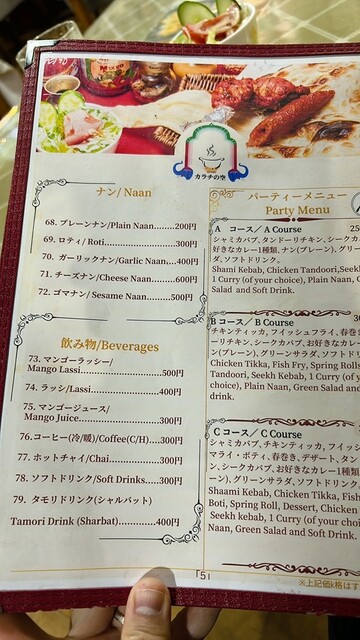 カラチの空
ナン/ Naan
68. プレーンナン/Plain Naan.......200円
69. ロティ/ Roti..............................300円
70. ガーリックナン/Garlic Naan...400円
71. チーズナン/Cheese Naan.........600円
72. ゴマナン/ Sesame Naan.........500円
飲み物/Beverages
73. マンゴーラッシー/
Mango Lassi..............................500円
74. ラッシ/Lassi..........................400円
75. マンゴージュース/
Mango Juice..............................300円
76.コーヒー(冷/暖)/Coffee(C/H)....300円
77. ホットチャイ/Chai................300円
78. ソフトドリンク/Soft Drinks....300円
79. タモリドリンク(シャルバット)
Tamori Drink (Sharbat)............400円
パーティーメニュー
Party Menu
A コース/ A Course 25
シャミカバブ、タンドーリチキン、シークカ
好きなカレー1種類、ナン(プレーン)、グリー
ダ、ソフトドリンク。
Shami Kebab, Chicken Tandoori,Seek
1 Curry (of your choice), Plain Naan, G
Salad and Soft Drink.
B コース/ B Course
チキンティッカ、フィッシュフライ、春巻き
ーリチキン、シークカバブ、お好きなカレー
ン(プレーン)、グリーンサラダ、ソフトドリ
Chicken Tikka, Fish Fry, Spring Rolls
Tandoori, Seekh Kebab, 1 Curry (of you
choice), Plain Naan, Green Salad and
drink.
C コース/ C Course
シャミカバブ、チキンティッカ、フィッシ
マライ・ボティ、春巻き、デザート、タン
ン、シークカバブ、お好きなカレー1種類
ーン)、グリーンサラダ、ソフトドリンク。
Shaami Kebab, Chicken Tikka, Fish
Boti, Spring Roll, Dessert, Chicken
Seekh kebab, 1 Curry (of your choi
Naan, Green Salad and Soft Drink.
「5」
※上記価格はす